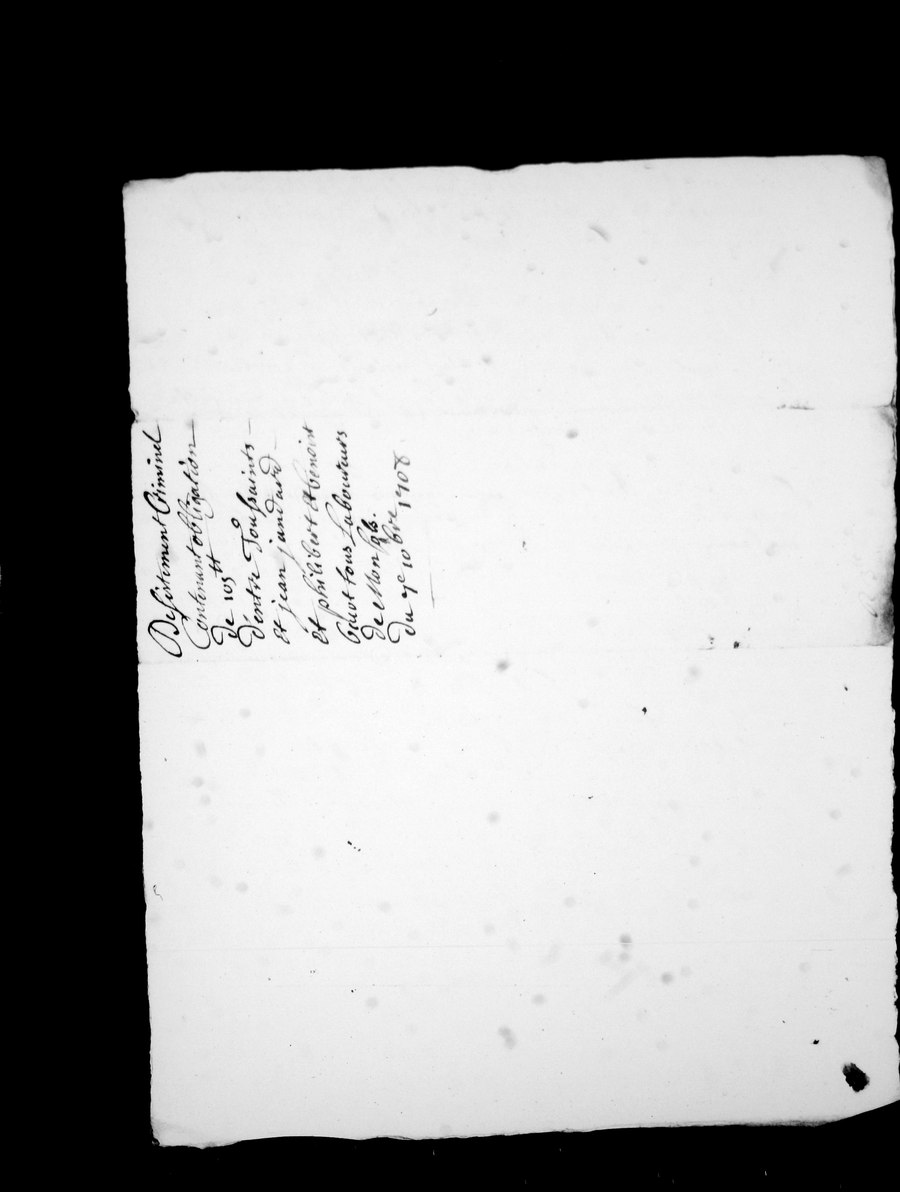 Desistement Criminel
Contenant obligation
de 105 tt
d'entre Toussaints
et jean jandard
et philibert & benoist
tous Laboureurs
de Mon
du 7e 10 bre 1708